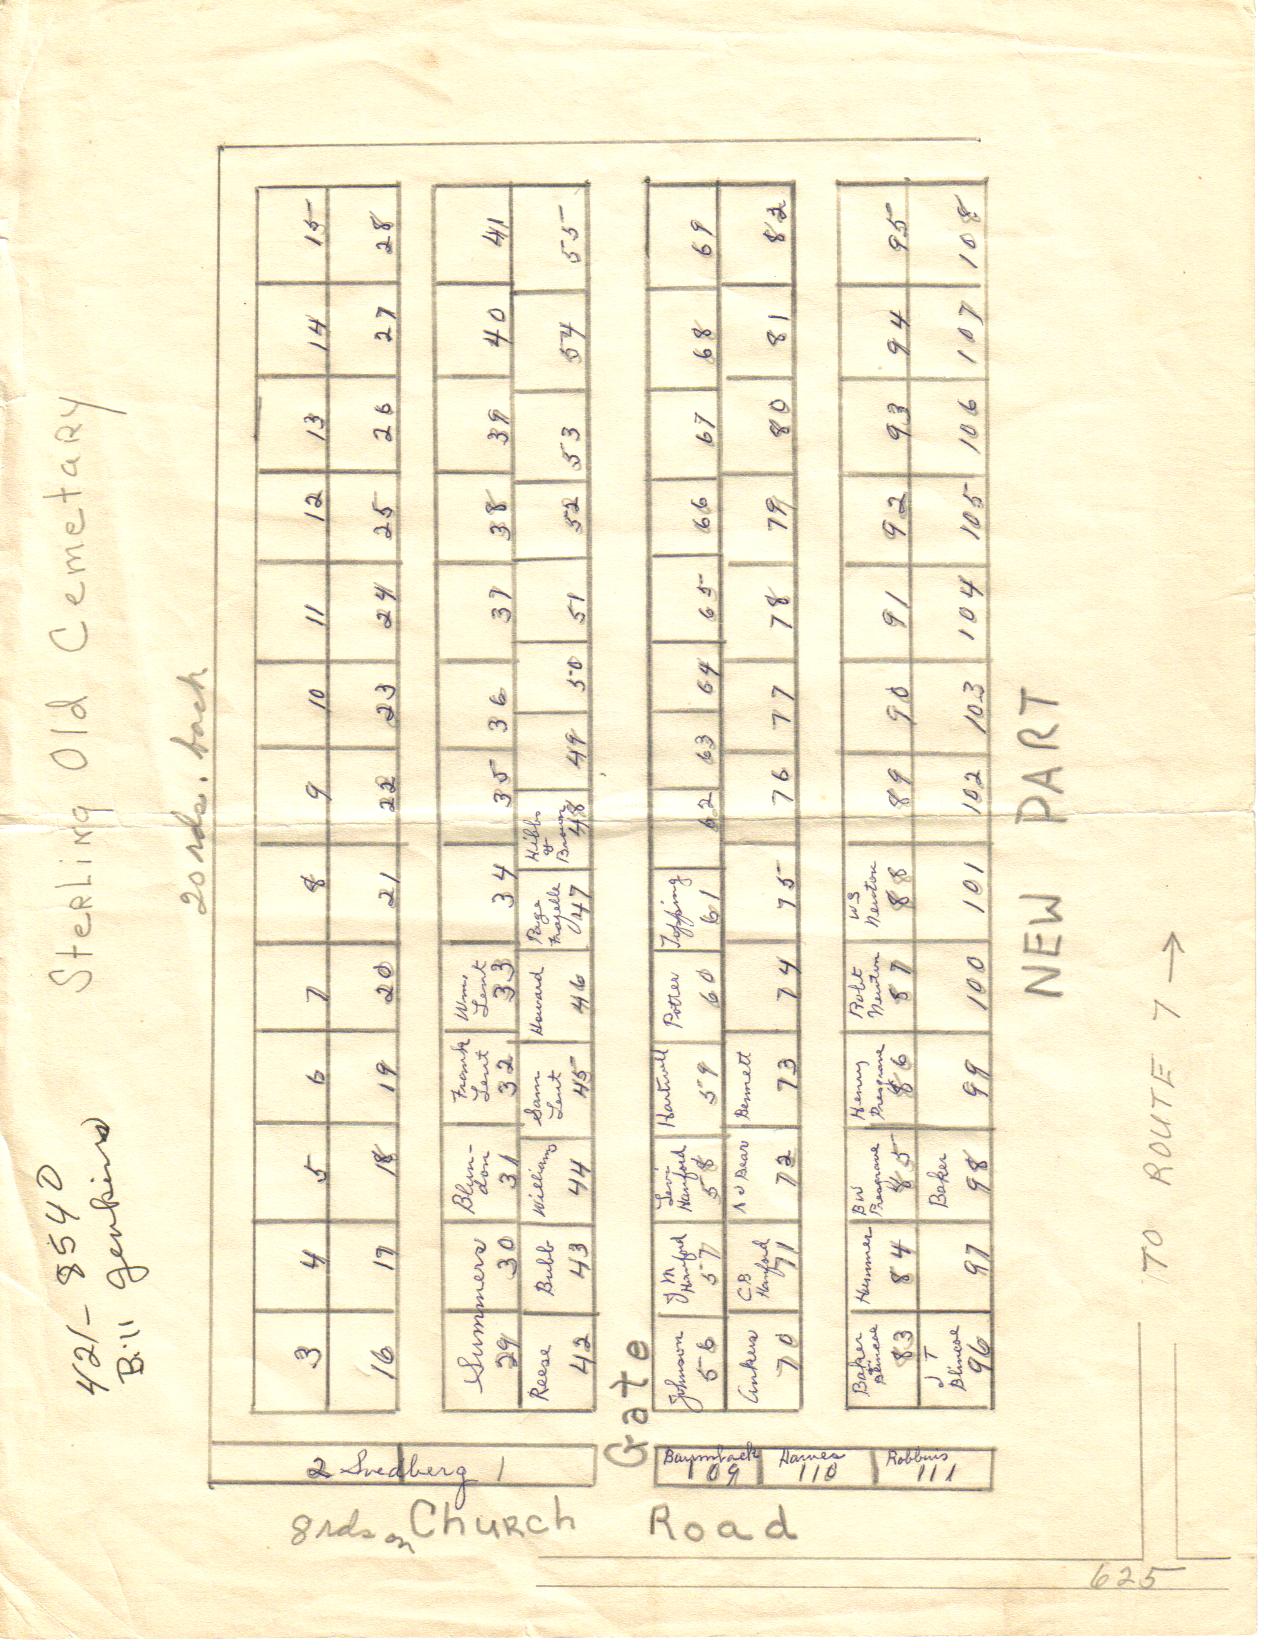 421-8540
Bill Jenkins
Sterling Old Cemetary
20 rds. back
3 4 5 6 7 8 9 10 11 12 13 14 15
16 17 18 19 20 21 22 23 24 25 26 27 28
Summers Blyn-don Frank Lent Wm Lent
29 30 31 32 33 34 35 36 37 38 39 40 41
Reese Bubb Williams Sam Lent Howard Page Frazelle Hibbs & Brown
42 43 44 45 46 47 48 49 50 51 52 53 54 55
Gate
Johnson J M Hanford Levi Hanford Hartwell Potter Topping
56 57 58 59 60 61 62 63 64 65 66 67 68 69
Ankers C.B. Hanford A J Bear Bennett
70 71 72 73 74 75 76 77 78 79 80 81 82
Baker & Blincoe Hummer BW Presgrave Henry Presgrave Robt Newton WS Newton
83 84 85 86 87 88 89 90 91 92 93 94 95
J T Blincoe Baker
96 97 98 99 100 101 102 103 104 105 106 107 108
2 Svedberg 1
Baymback Hawes Robbins
109 110 111
8 rds on Church Road
NEW PART
TO ROUTE 7 →
625